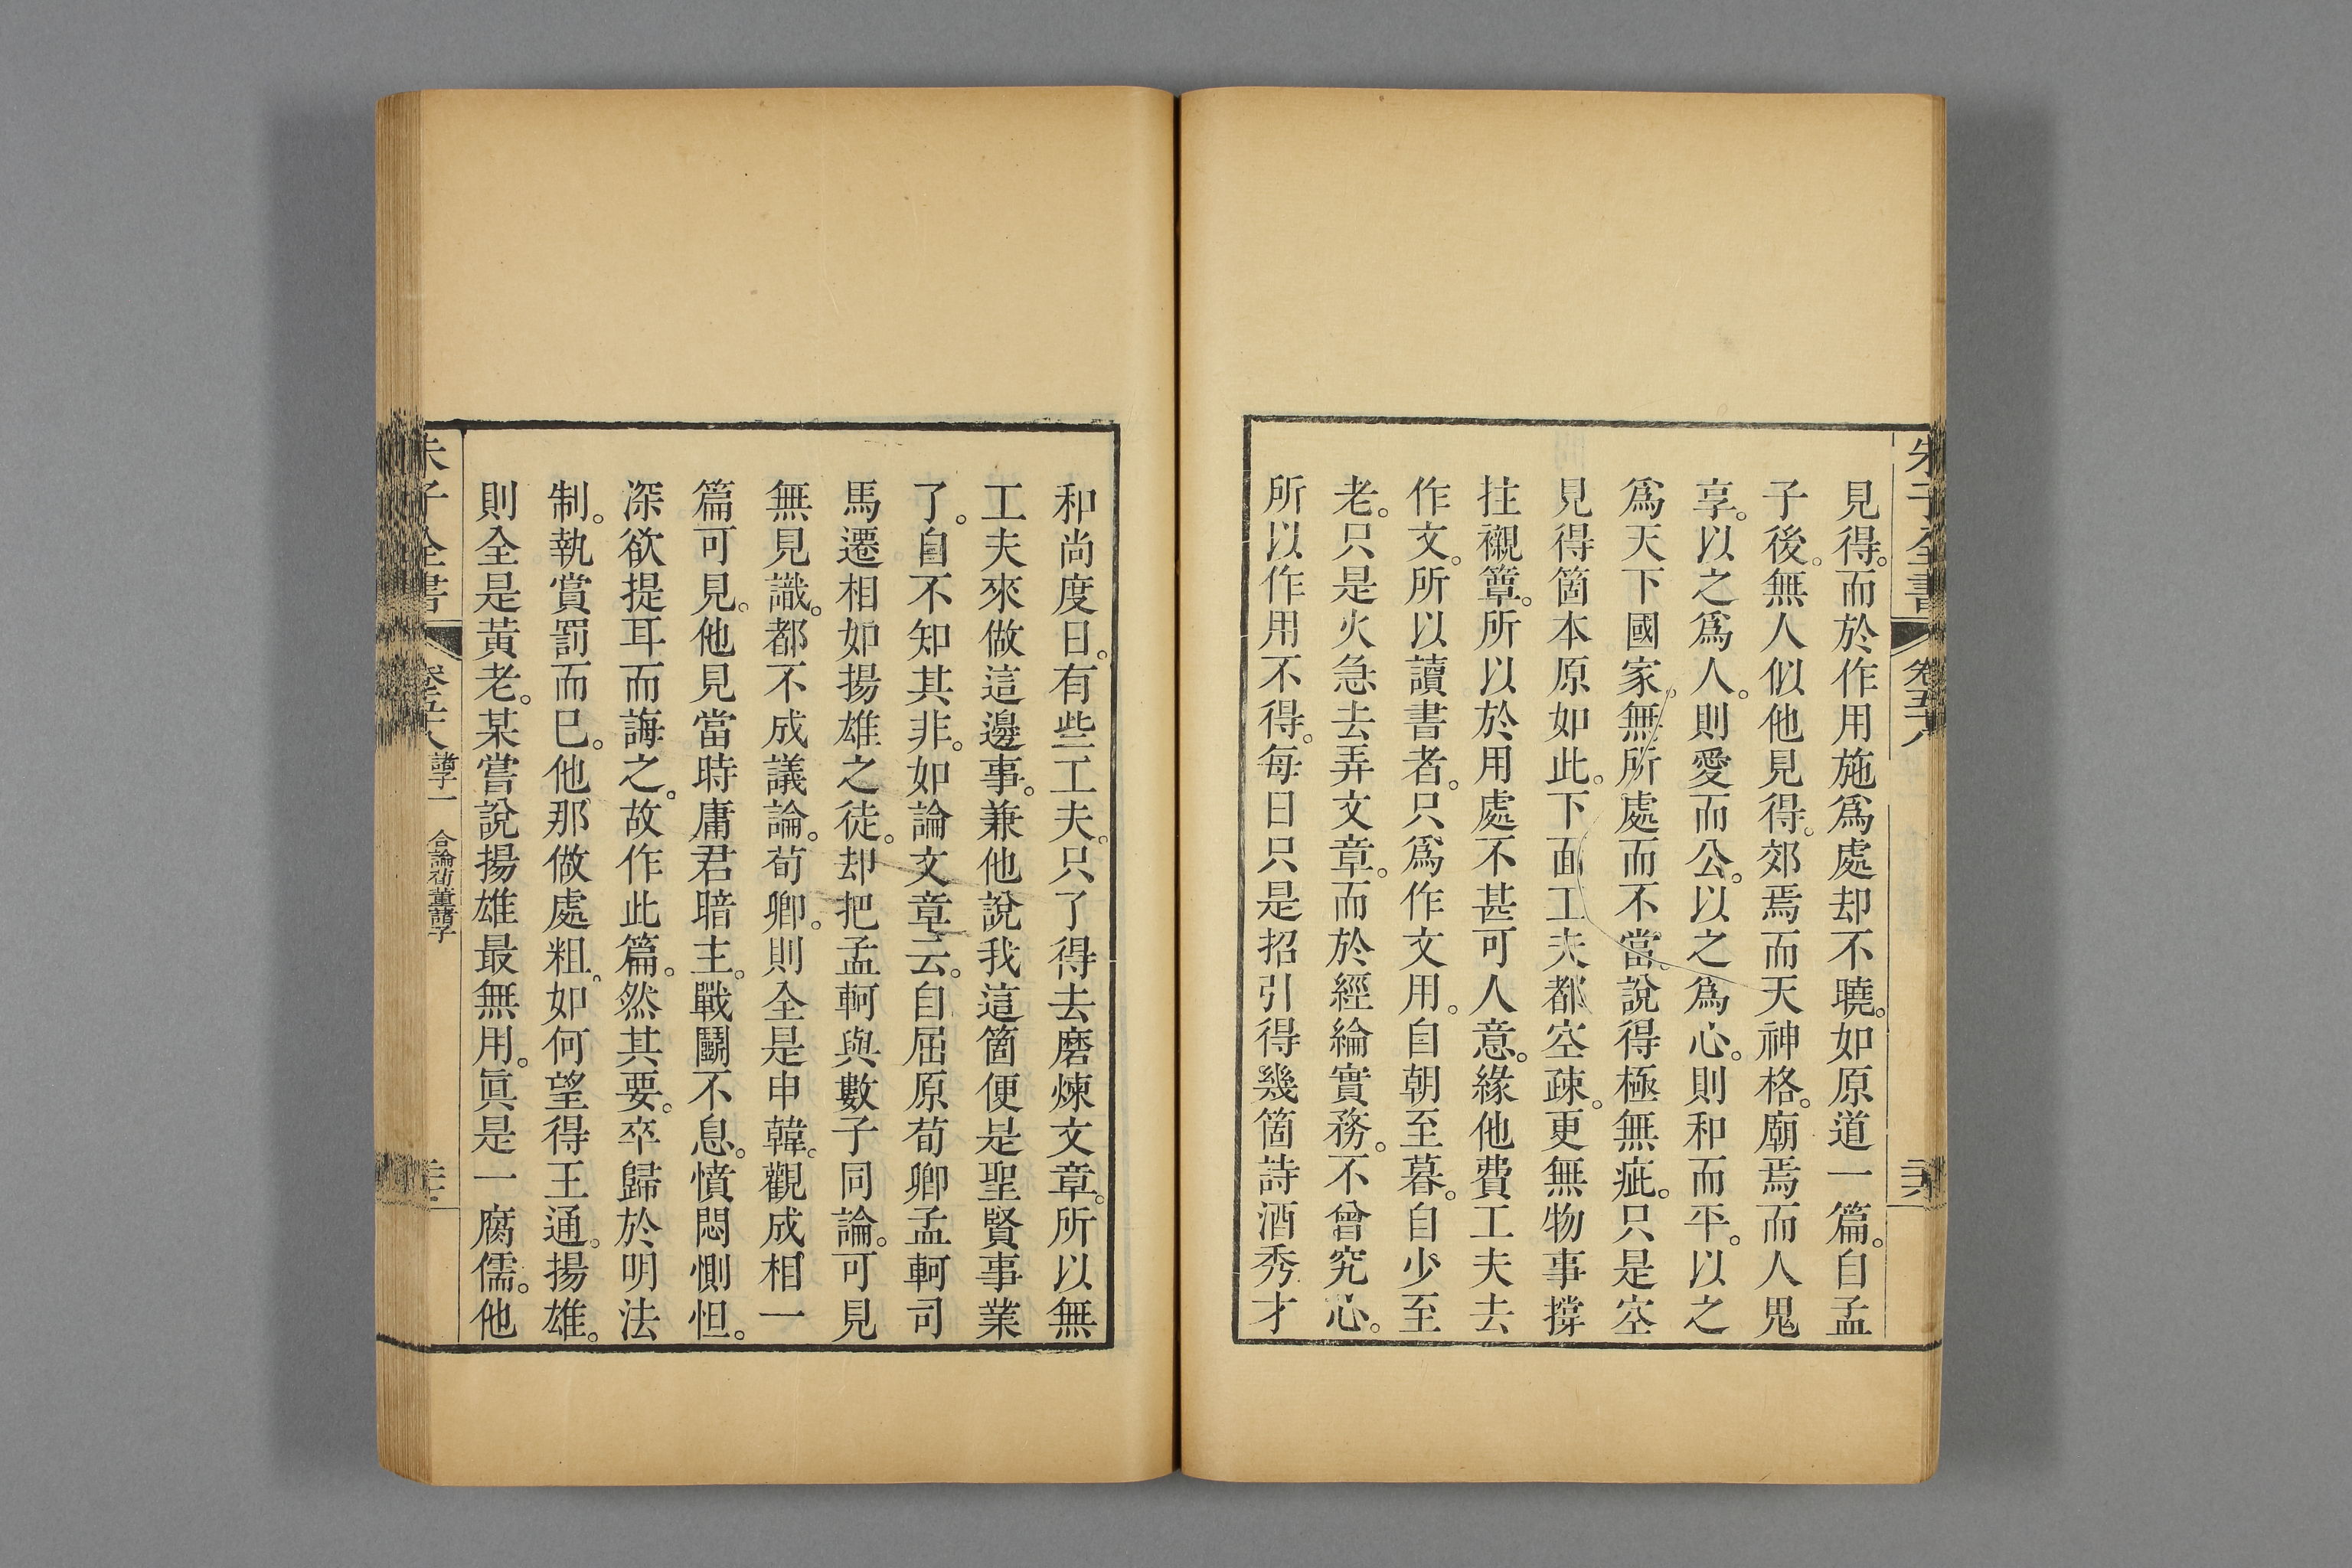 朱子全書 卷五十八
見得。而於作用施爲處却不曉。如原道一篇。自孟
子後。無人似他見得。郊焉而天神格。廟焉而人鬼
享。以之爲人。則愛而公。以之爲心。則和而平。以之
爲天下國家。無所處而不當。說得極無疵。只是空
見得箇本原如此。下面工夫都空疎。更無物事撐
拄襯簟。所以於用處不甚可人意。緣他費工夫去
作文。所以讀書者。只爲作文用。自朝至暮。自少至
老。只是火急去弄文章。而於經綸實務。不曾究心。
所以作用不得。每日只是招引得幾箇詩酒秀才
和尚度日。有些工夫。只了得去磨煉文章。所以無
工夫來做這邊事。兼他說我這箇便是聖賢事業
了。自不知其非。如論文章云。自屈原荀卿孟軻司
馬遷相如揚雄之徒。却把孟軻與數子同論。可見
無見識。都不成議論。荀卿。則全是申韓。觀成相一
篇可見。他見當時庸君暗主。戰鬭不息。憤悶惻怛。
深欲提耳而誨之。故作此篇。然其要。卒歸於明法
制。執賞罰而已。他那做處粗。如何望得王通。揚雄。
則全是黃老。某嘗說揚雄最無用。眞是一腐儒。他
朱子全書 卷五十八 諸子一 合論荀董諸子